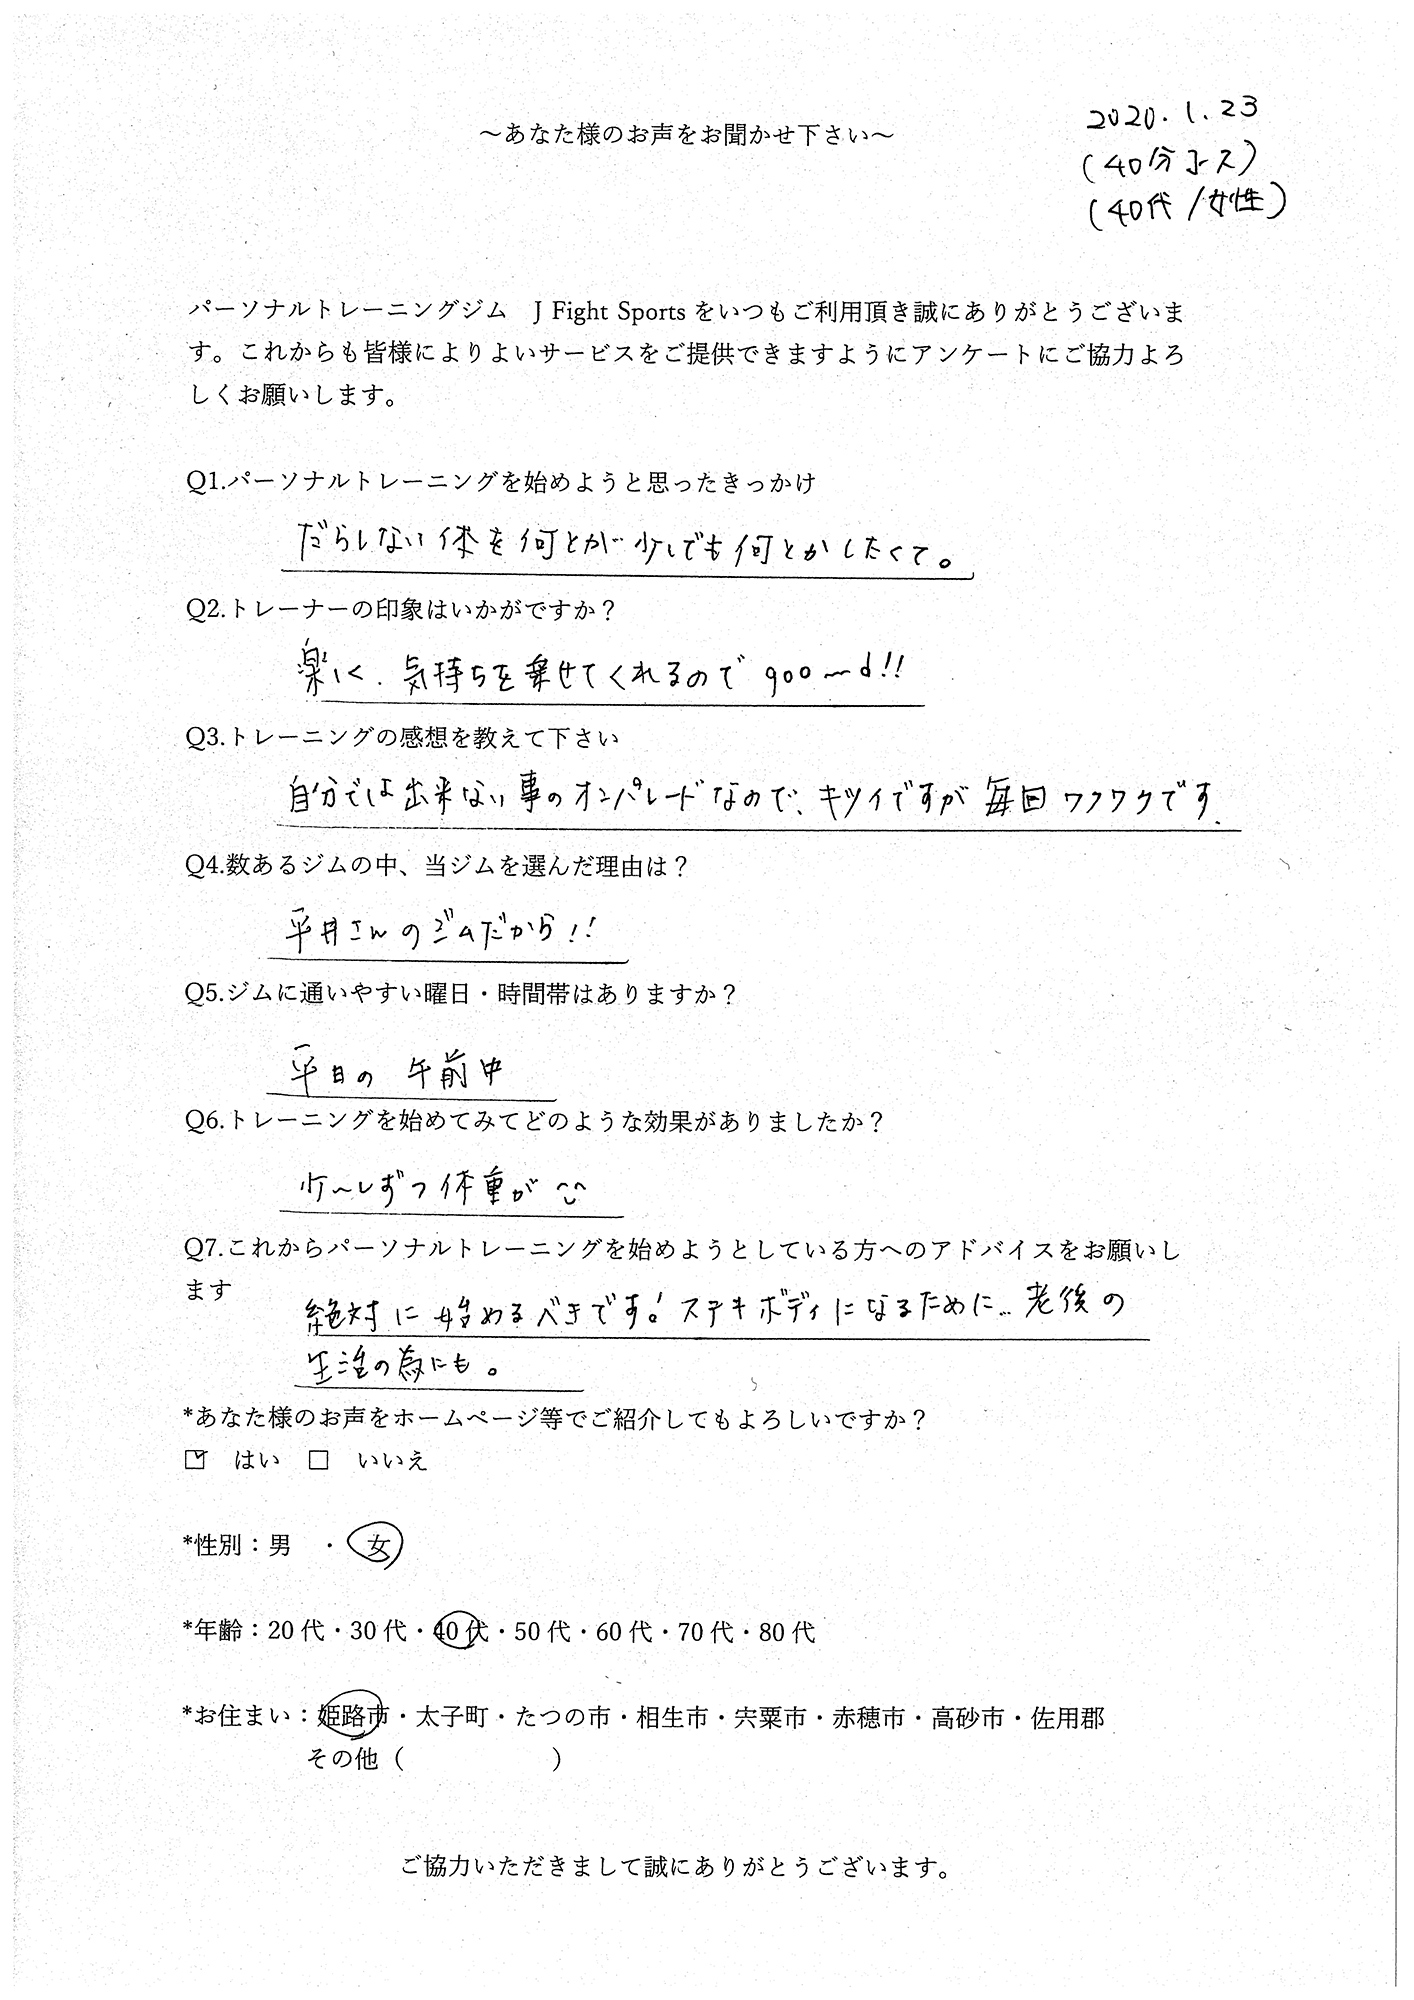 ～あなた様のお声をお聞かせ下さい～
2020.1.23
(40分コース)
(40代/女性)
パーソナルトレーニングジム　J Fight Sportsをいつもご利用頂き誠にありがとうございま
す。これからも皆様によりよいサービスをご提供できますようにアンケートにご協力よろ
しくお願いします。
Q1.パーソナルトレーニングを始めようと思ったきっかけ
だらしない体を何とか少しでも何とかしたくて。
Q2.トレーナーの印象はいかがですか？
楽しく、気持ちを乗せてくれるので goo〜d!!
Q3.トレーニングの感想を教えて下さい
自分では出来ない事のオンパレードなので、キツイですが毎回ワクワクです.
Q4.数あるジムの中、当ジムを選んだ理由は？
平井さんのジムだから!!
Q5.ジムに通いやすい曜日・時間帯はありますか？
平日の 午前中
Q6.トレーニングを始めてみてどのような効果がありましたか？
少〜しずつ体重が ^^
Q7.これからパーソナルトレーニングを始めようとしている方へのアドバイスをお願いし
ます
絶対に始めるべきです!ステキボディになるために…老後の
生活の為にも。
*あなた様のお声をホームページ等でご紹介してもよろしいですか？
☑ はい □ いいえ
*性別：男　・　女
*年齢：20代・30代・40代・50代・60代・70代・80代
*お住まい：姫路市・太子町・たつの市・相生市・宍粟市・赤穂市・高砂市・佐用郡
その他（　　　　　　）
ご協力いただきまして誠にありがとうございます。